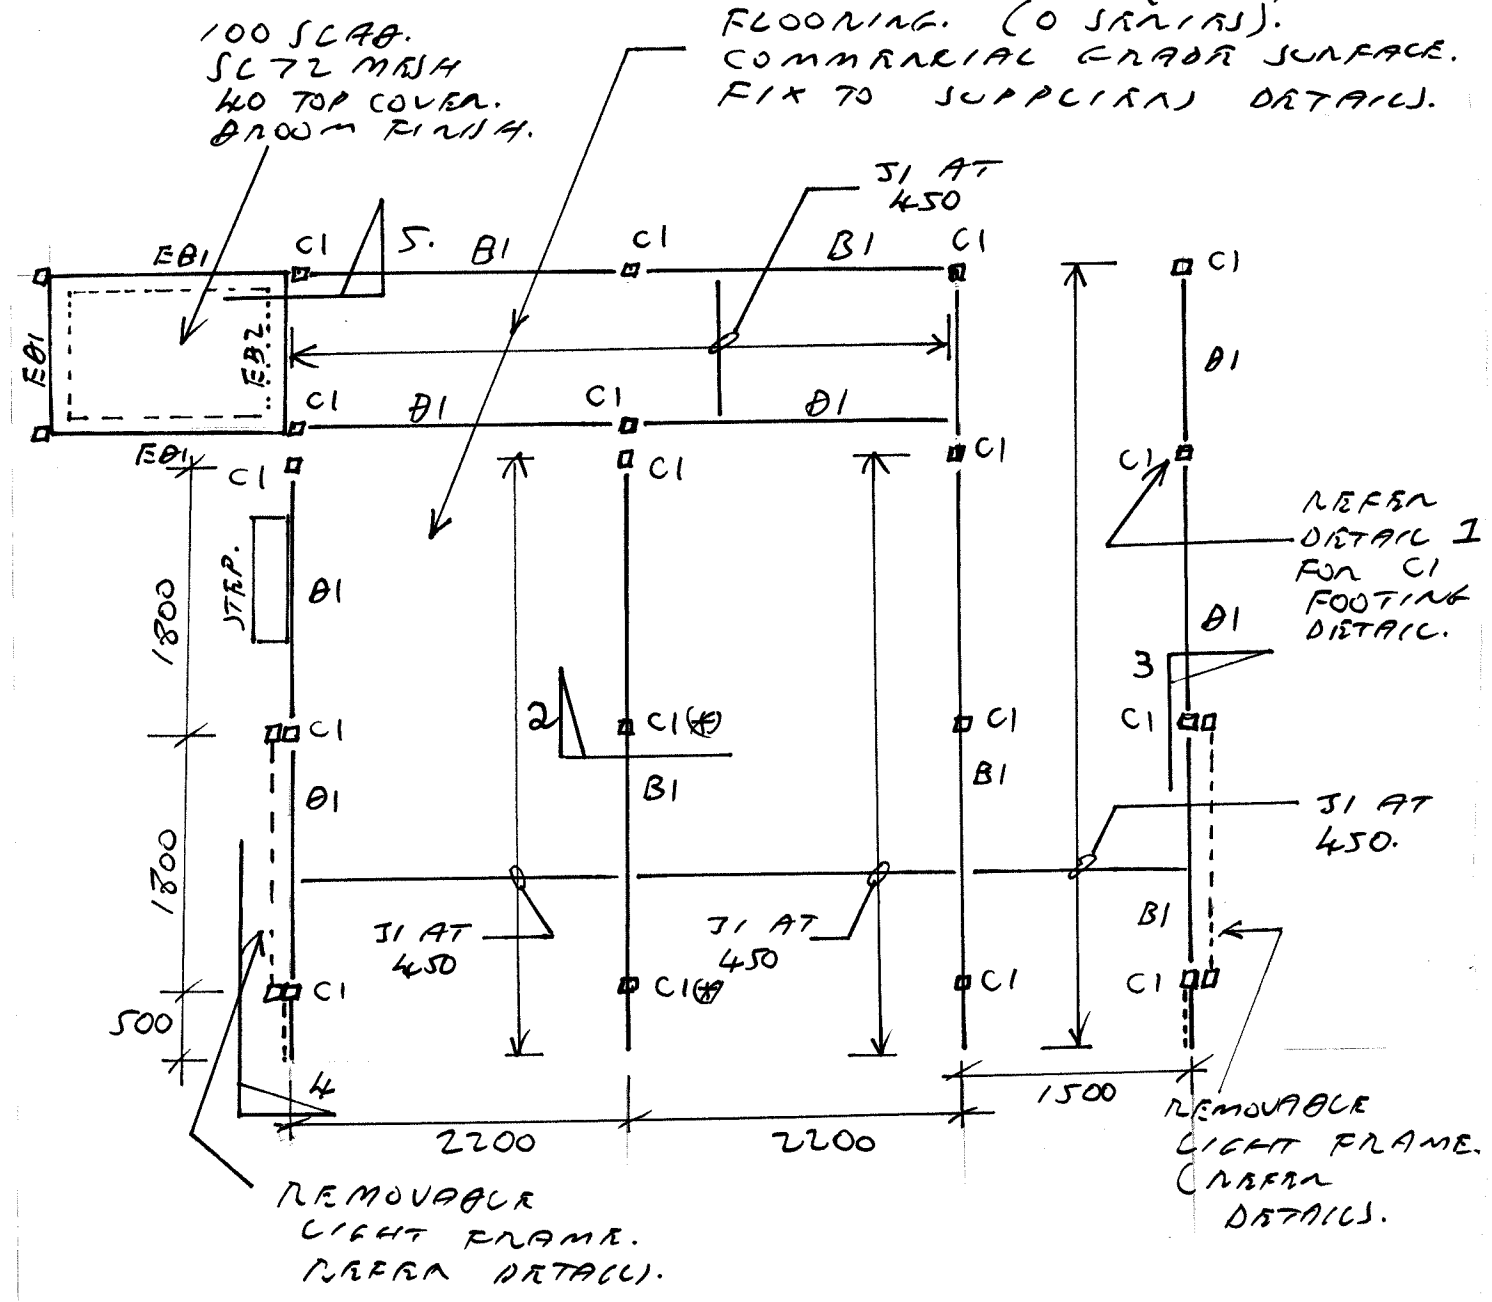 100 SLAB.
SL72 MESH
40 TOP COVER.
BROOM FINISH.
FLOORING. (O SERIES).
COMMERCIAL GRADE SURFACE.
FIX TO SUPPLIERS DETAILS.
J1 AT
450
EB1
C1
5.
B1
C1
B1
C1
C1
EB1
EB2
B1
C1
B1
C1
B1
EB1
C1
C1
C1
C1
REFER
DETAIL 1
FOR C1
FOOTING
DETAIL.
STEP.
B1
1800
B1
3
2
C1
C1(*)
C1
C1
B1
B1
B1
J1 AT
450.
1800
J1 AT
450
J1 AT
450
B1
C1
C1(*)
C1
C1
500
4
2200
2200
1500
REMOVABLE
LIGHT FRAME.
(REFER
DETAILS.
REMOVABLE
LIGHT FRAME.
REFER DETAILS.